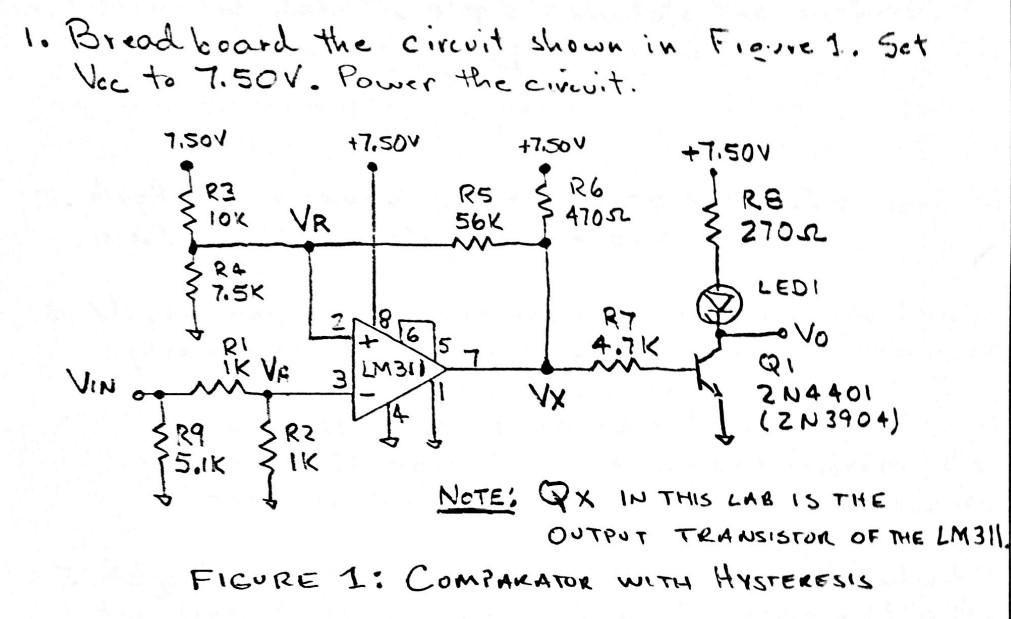 1. Breadboard the circuit shown in Figure 1. Set
Vcc to 7.50V. Power the circuit.
7.50V
+7.50V
+7.50V
+7.50V
R3
10K
VR
R5
56K
R6
470Ω
R8
270Ω
R4
7.5K
LED1
2
8
6
5
+
LM311
7
R7
4.7K
VO
R1
1K
VA
3
-
1
4
VX
Q1
2N4401
(2N3904)
VIN
R9
5.1K
R2
1K
NOTE: QX IN THIS LAB IS THE
OUTPUT TRANSISTOR OF THE LM311.
FIGURE 1: COMPARATOR WITH HYSTERESIS